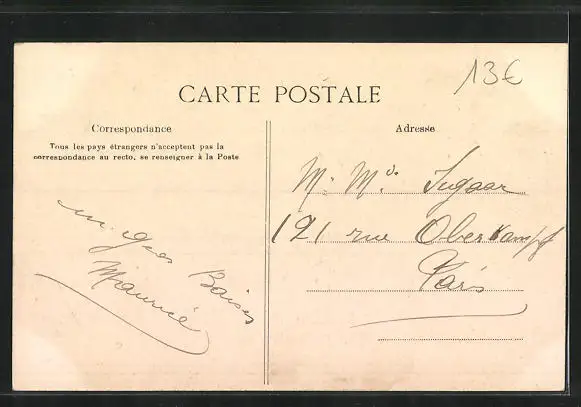 13€
CARTE POSTALE
Correspondance
Tous les pays étrangers n'acceptent pas la
correspondance au recto, se renseigner à la Poste
Adresse
M. Mde Jugaar
121 rue Oberkampf
Paris
un gros Baiser
Maurice